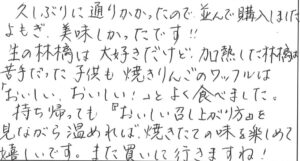 久しぶりに通りかかったので並んで購入しました
よもぎ、美味しかったです!!
生の林檎は大好きだけど、加熱した林檎は
苦手だった子供も焼きりんごのワッフルは
「おいしい、おいしい!」とよく食べました。
持ち帰っても『おいしい召し上がり方』を
見ながら温めれば、焼きたての味を楽しめて
嬉しいです。また買いに行きますね!